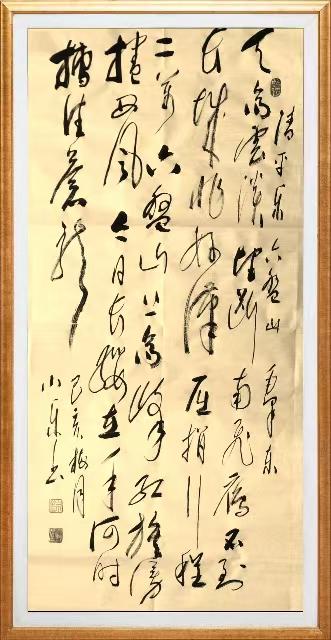 清平乐 六盘山 毛泽东
天高雲淡 望断南飞雁 不到
长城非好漢 屈指行程
二万 六盤山上高峰 红旗漫
捲西风 今日长缨在手 何时
縛住蒼龙
己亥 月
小乐书